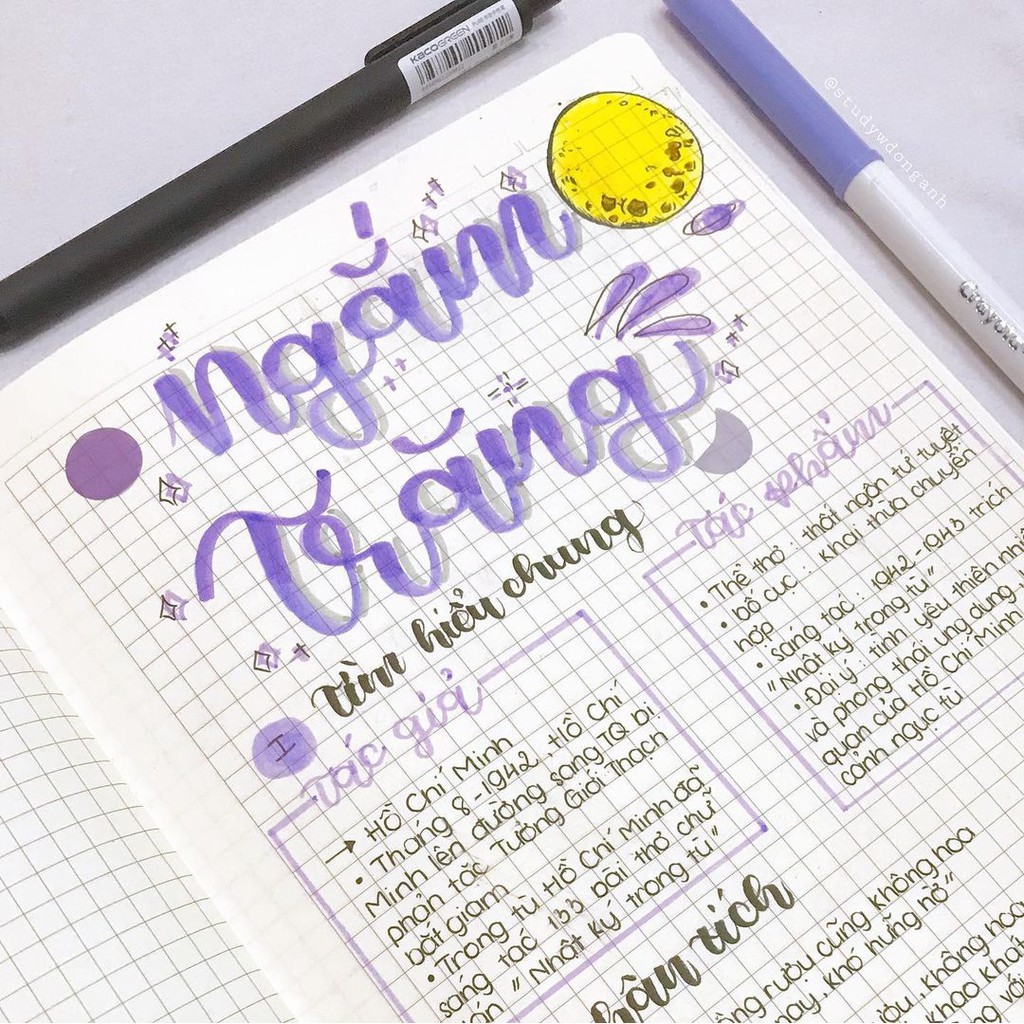 KACOGREEN
@studywdonganh
Crayola
ngắm
Trăng
tìm hiểu chung
I
tác giả
→ Hồ Chí Minh
• Tháng 8-1942, Hồ Chí
Minh lên đường sang TQ bị
phản tắc Tưởng Giới Thạch
bắt giam
• Trong tù Hồ Chí Minh đã
sáng tác 133 bài thơ chữ
Hán "Nhật ký trong tù"
tác phẩm
• Thể thơ: thất ngôn tứ tuyệt
• bố cục: khai thừa chuyển
hợp
• sáng tác: 1942-1943 trích
"Nhật ký trong tù"
• Đại ý: tình yêu thiên
và phong thái ung dung
quan của Hồ Chí Minh
cảnh ngục tù
tích
rượu cũng không hoa
nay, khó hững hờ"
không hoa
khao khát
với